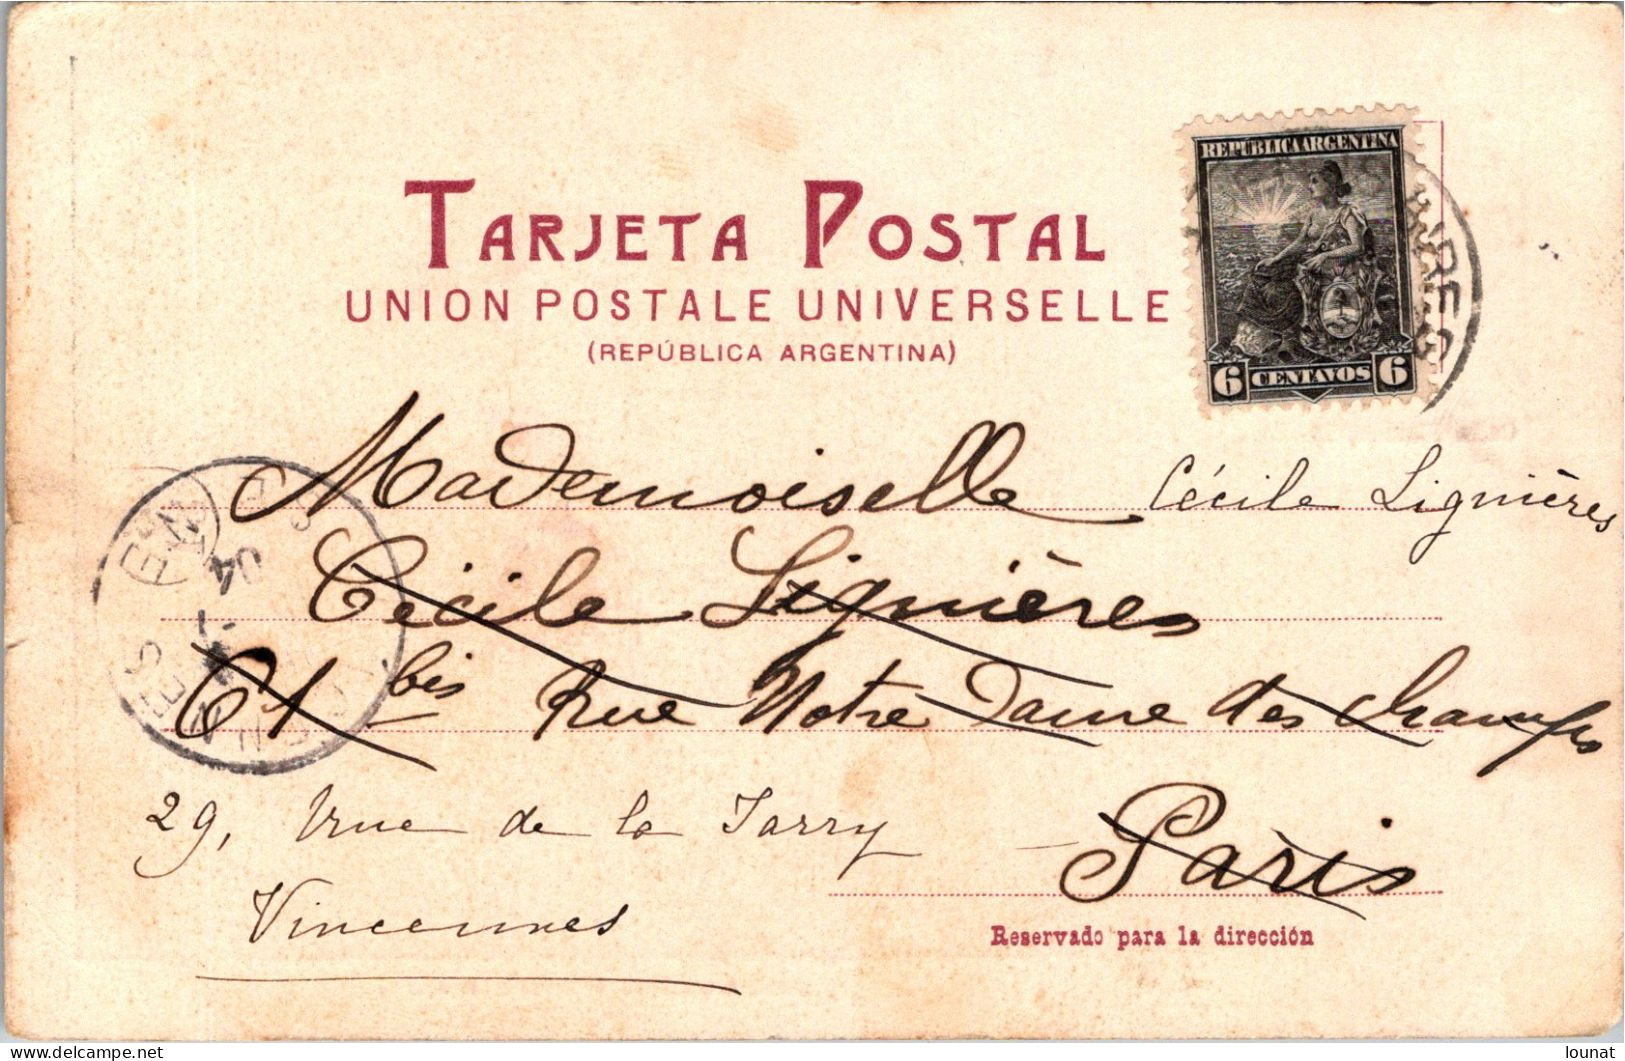 TARJETA POSTAL
UNION POSTALE UNIVERSELLE
(REPÚBLICA ARGENTINA)
REPUBLICA ARGENTINA
6 CENTAVOS 6
Mademoiselle Cécile Lignières
Cécile Lignières
61 bis Rue Notre Dame des Champs
29, rue de la Jarry Paris
Vincennes
Reservado para la dirección
delcampe.net
lounat